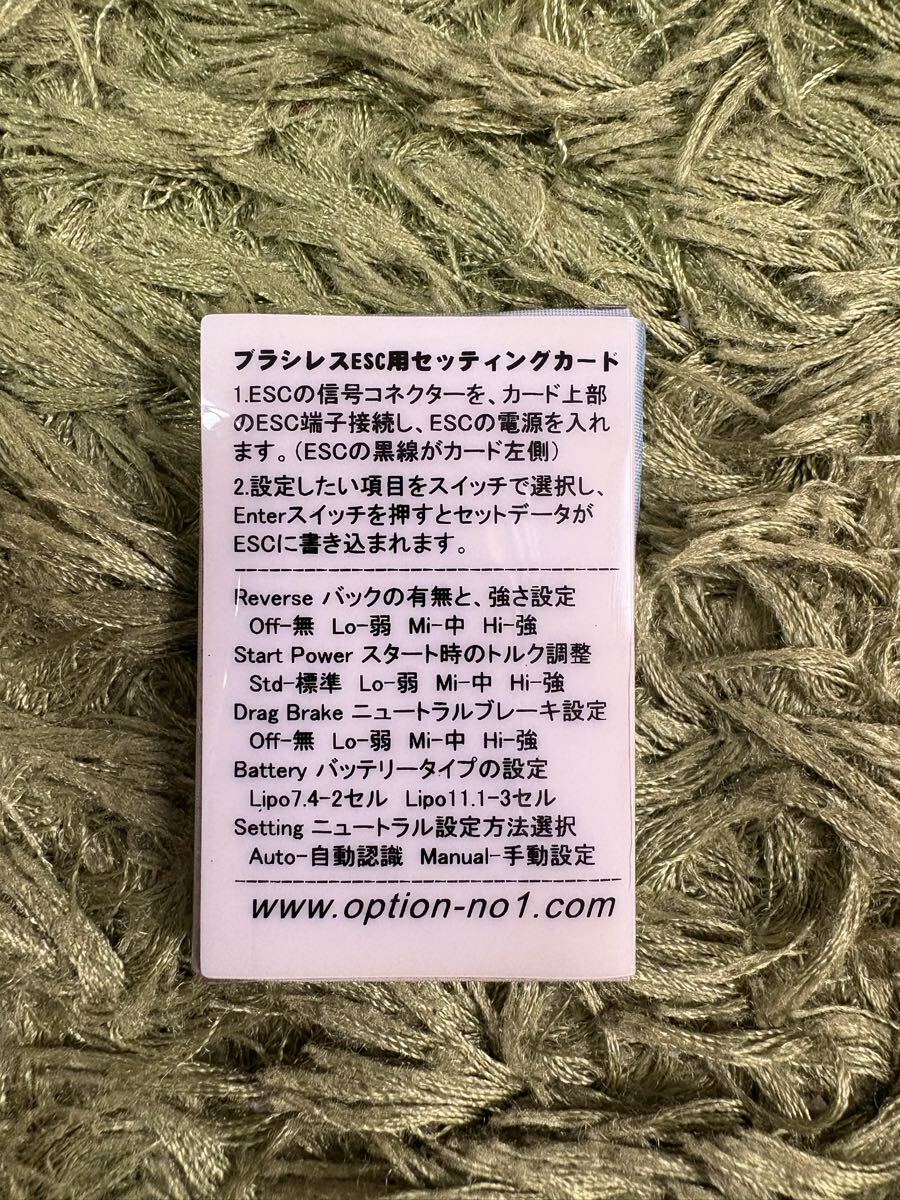 ブラシレスESC用セッティングカード
1.ESCの信号コネクターを、カード上部
のESC端子接続し、ESCの電源を入れ
ます。(ESCの黒線がカード左側)
2.設定したい項目をスイッチで選択し、
Enterスイッチを押すとセットデータが
ESCに書き込まれます。
Reverse バックの有無と、強さ設定
Off-無 Lo-弱 Mi-中 Hi-強
Start Power スタート時のトルク調整
Std-標準 Lo-弱 Mi-中 Hi-強
Drag Brake ニュートラルブレーキ設定
Off-無 Lo-弱 Mi-中 Hi-強
Battery バッテリータイプの設定
Lipo7.4-2セル Lipo11.1-3セル
Setting ニュートラル設定方法選択
Auto-自動認識 Manual-手動設定
www.option-no1.com